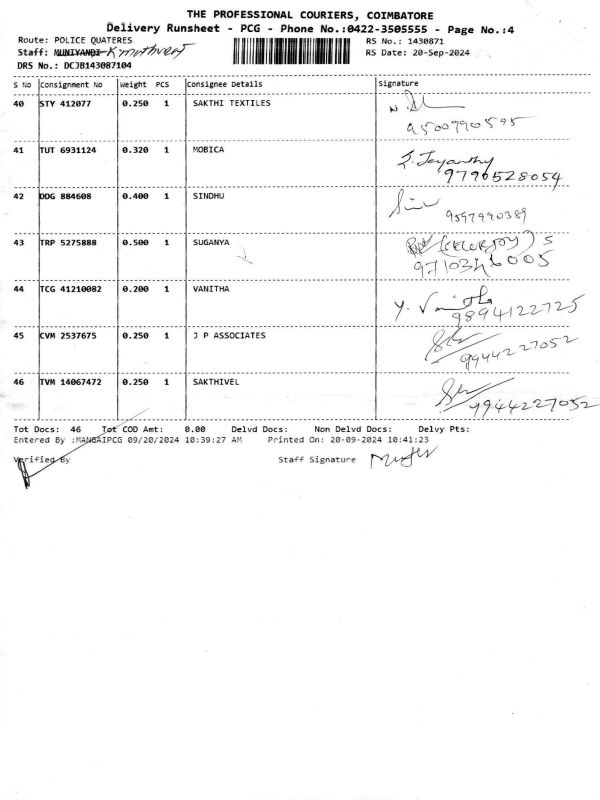 THE PROFESSIONAL COURIERS, COIMBATORE
Delivery Runsheet - PCG - Phone No.:0422-3505555 - Page No.:4
Route: POLICE QUATERES RS No.: 1430871
Staff: MUNIYANDI RS Date: 20-Sep-2024
DRS No.: DCJB143087104
S No Consignment No Weight PCS Consignee Details Signature
40 STY 412077 0.250 1 SAKTHI TEXTILES
9500790595
41 TUT 6931124 0.320 1 MOBICA S. Jeyanthy
9790528054
42 DDG 884608 0.400 1 SINDHU
9597990389
43 TRP 5275888 0.500 1 SUGANYA
9710346005
44 TCG 41210082 0.200 1 VANITHA Y. Vanitha
9894122725
45 CVM 2537675 0.250 1 J P ASSOCIATES
9944227052
46 TVM 14067472 0.250 1 SAKTHIVEL
9944227052
Tot Docs: 46 Tot COD Amt: 0.00 Delvd Docs: Non Delvd Docs: Delvy Pts:
Entered By :MANGAIPCG 09/20/2024 10:39:27 AM Printed On: 20-09-2024 10:41:23
Verified By Staff Signature